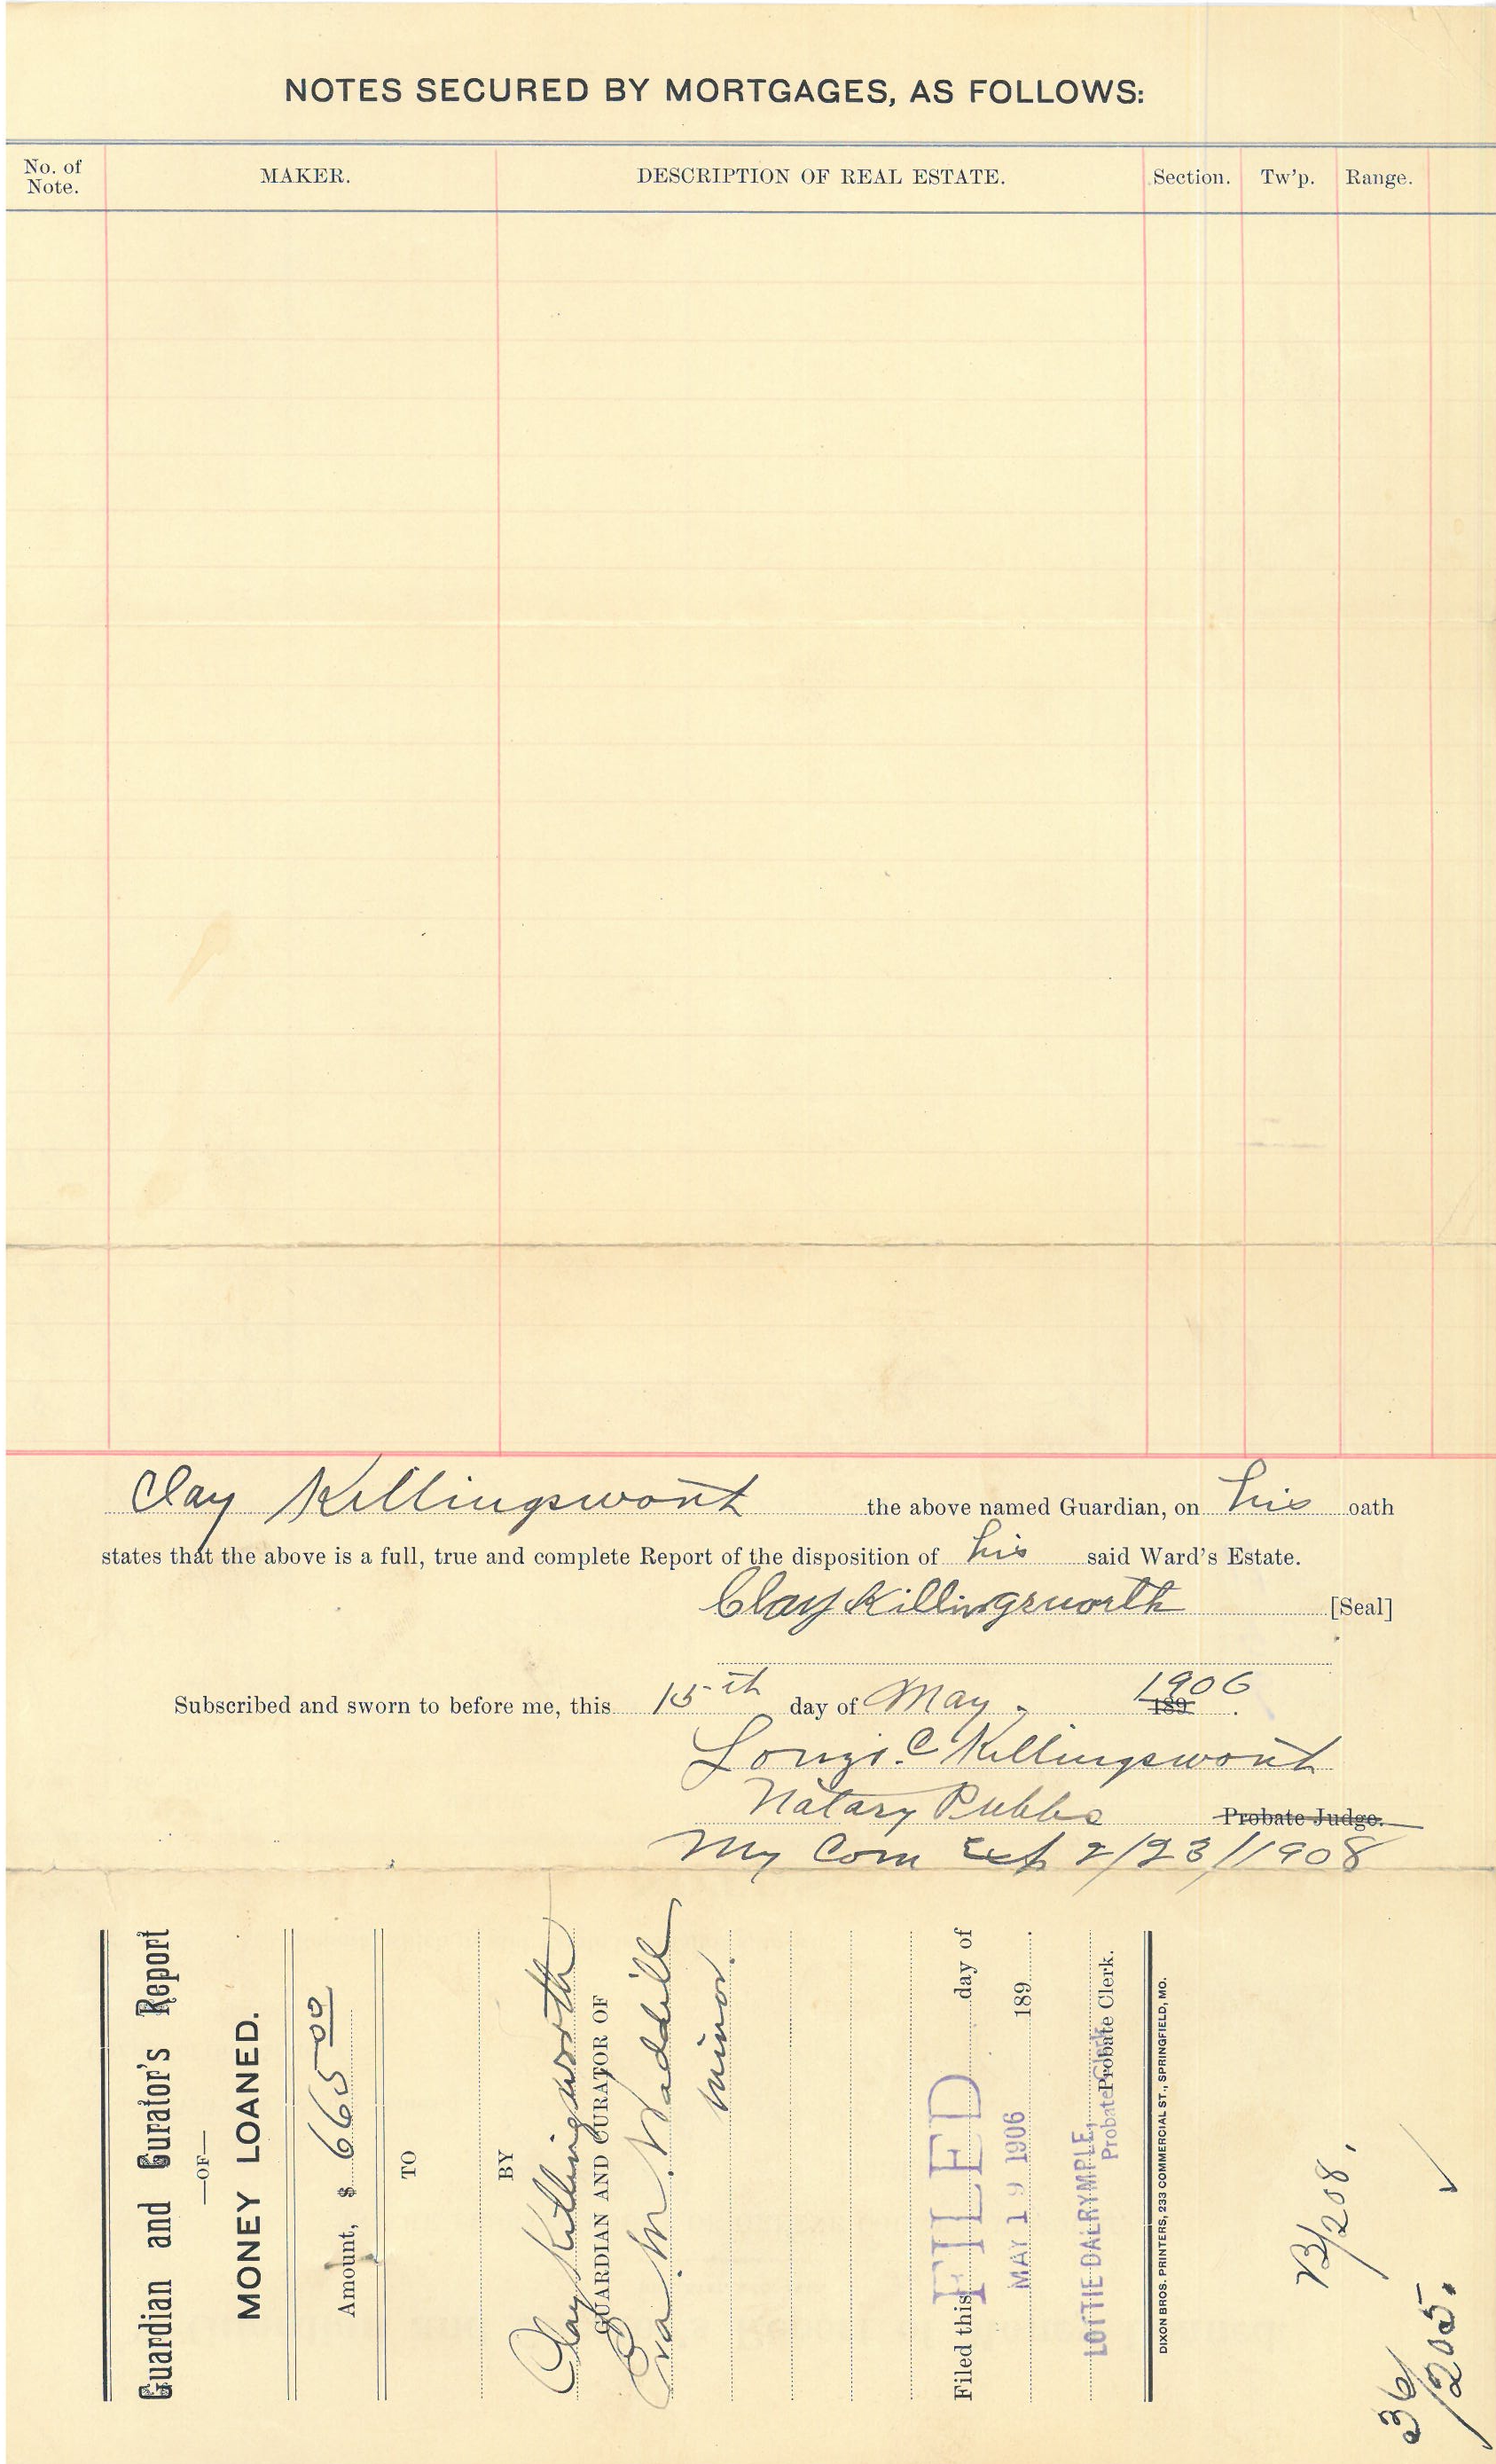 NOTES SECURED BY MORTGAGES, AS FOLLOWS:
No. of Note. MAKER. DESCRIPTION OF REAL ESTATE. Section. Tw'p. Range.
Clay Killingsworth the above named Guardian, on his oath
states that the above is a full, true and complete Report of the disposition of his said Ward's Estate.
Clay Killingsworth [Seal]
Subscribed and sworn to before me, this 15th day of May 189 1906
C Killingsworth
Notary Public Probate Judge.
My Com Exp 2/23/1908
Guardian and Curator's Report
—OF—
MONEY LOANED.
Amount, $ 665 00
TO
BY
Clay Killingsworth
GUARDIAN AND CURATOR OF
Eva M. Waddill
minor.
Filed this day of
FILED
189 .
MAY 19 1906
LOTTIE DALRYMPLE,
Probate Clerk.
Probate Clerk.
DIXON BROS. PRINTERS, 233 COMMERCIAL ST., SPRINGFIELD, MO.
B/208.
36/205.